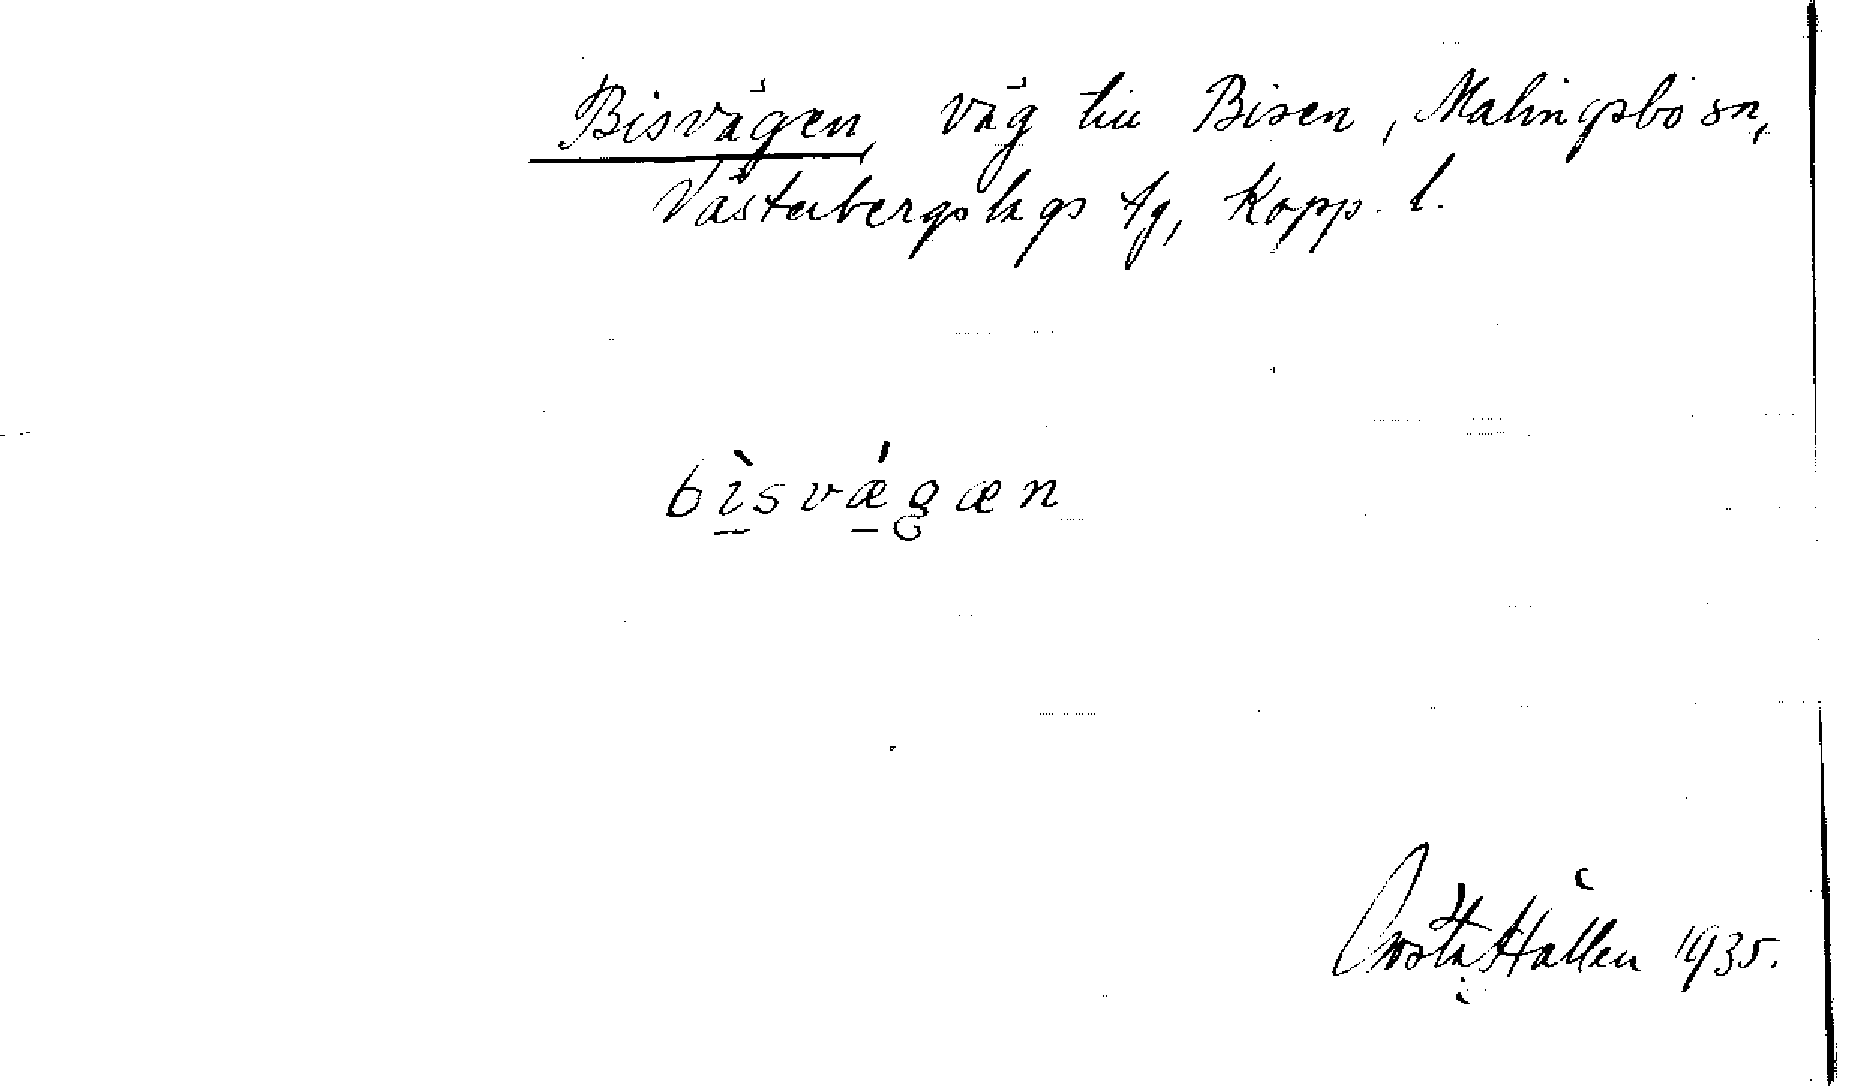 Bisvägen, väg till Bisen, Malingsbo sn,
Västerbergslags tg, Kopp. l.
bìsvǽgæn
Gösta Hållen 1935.